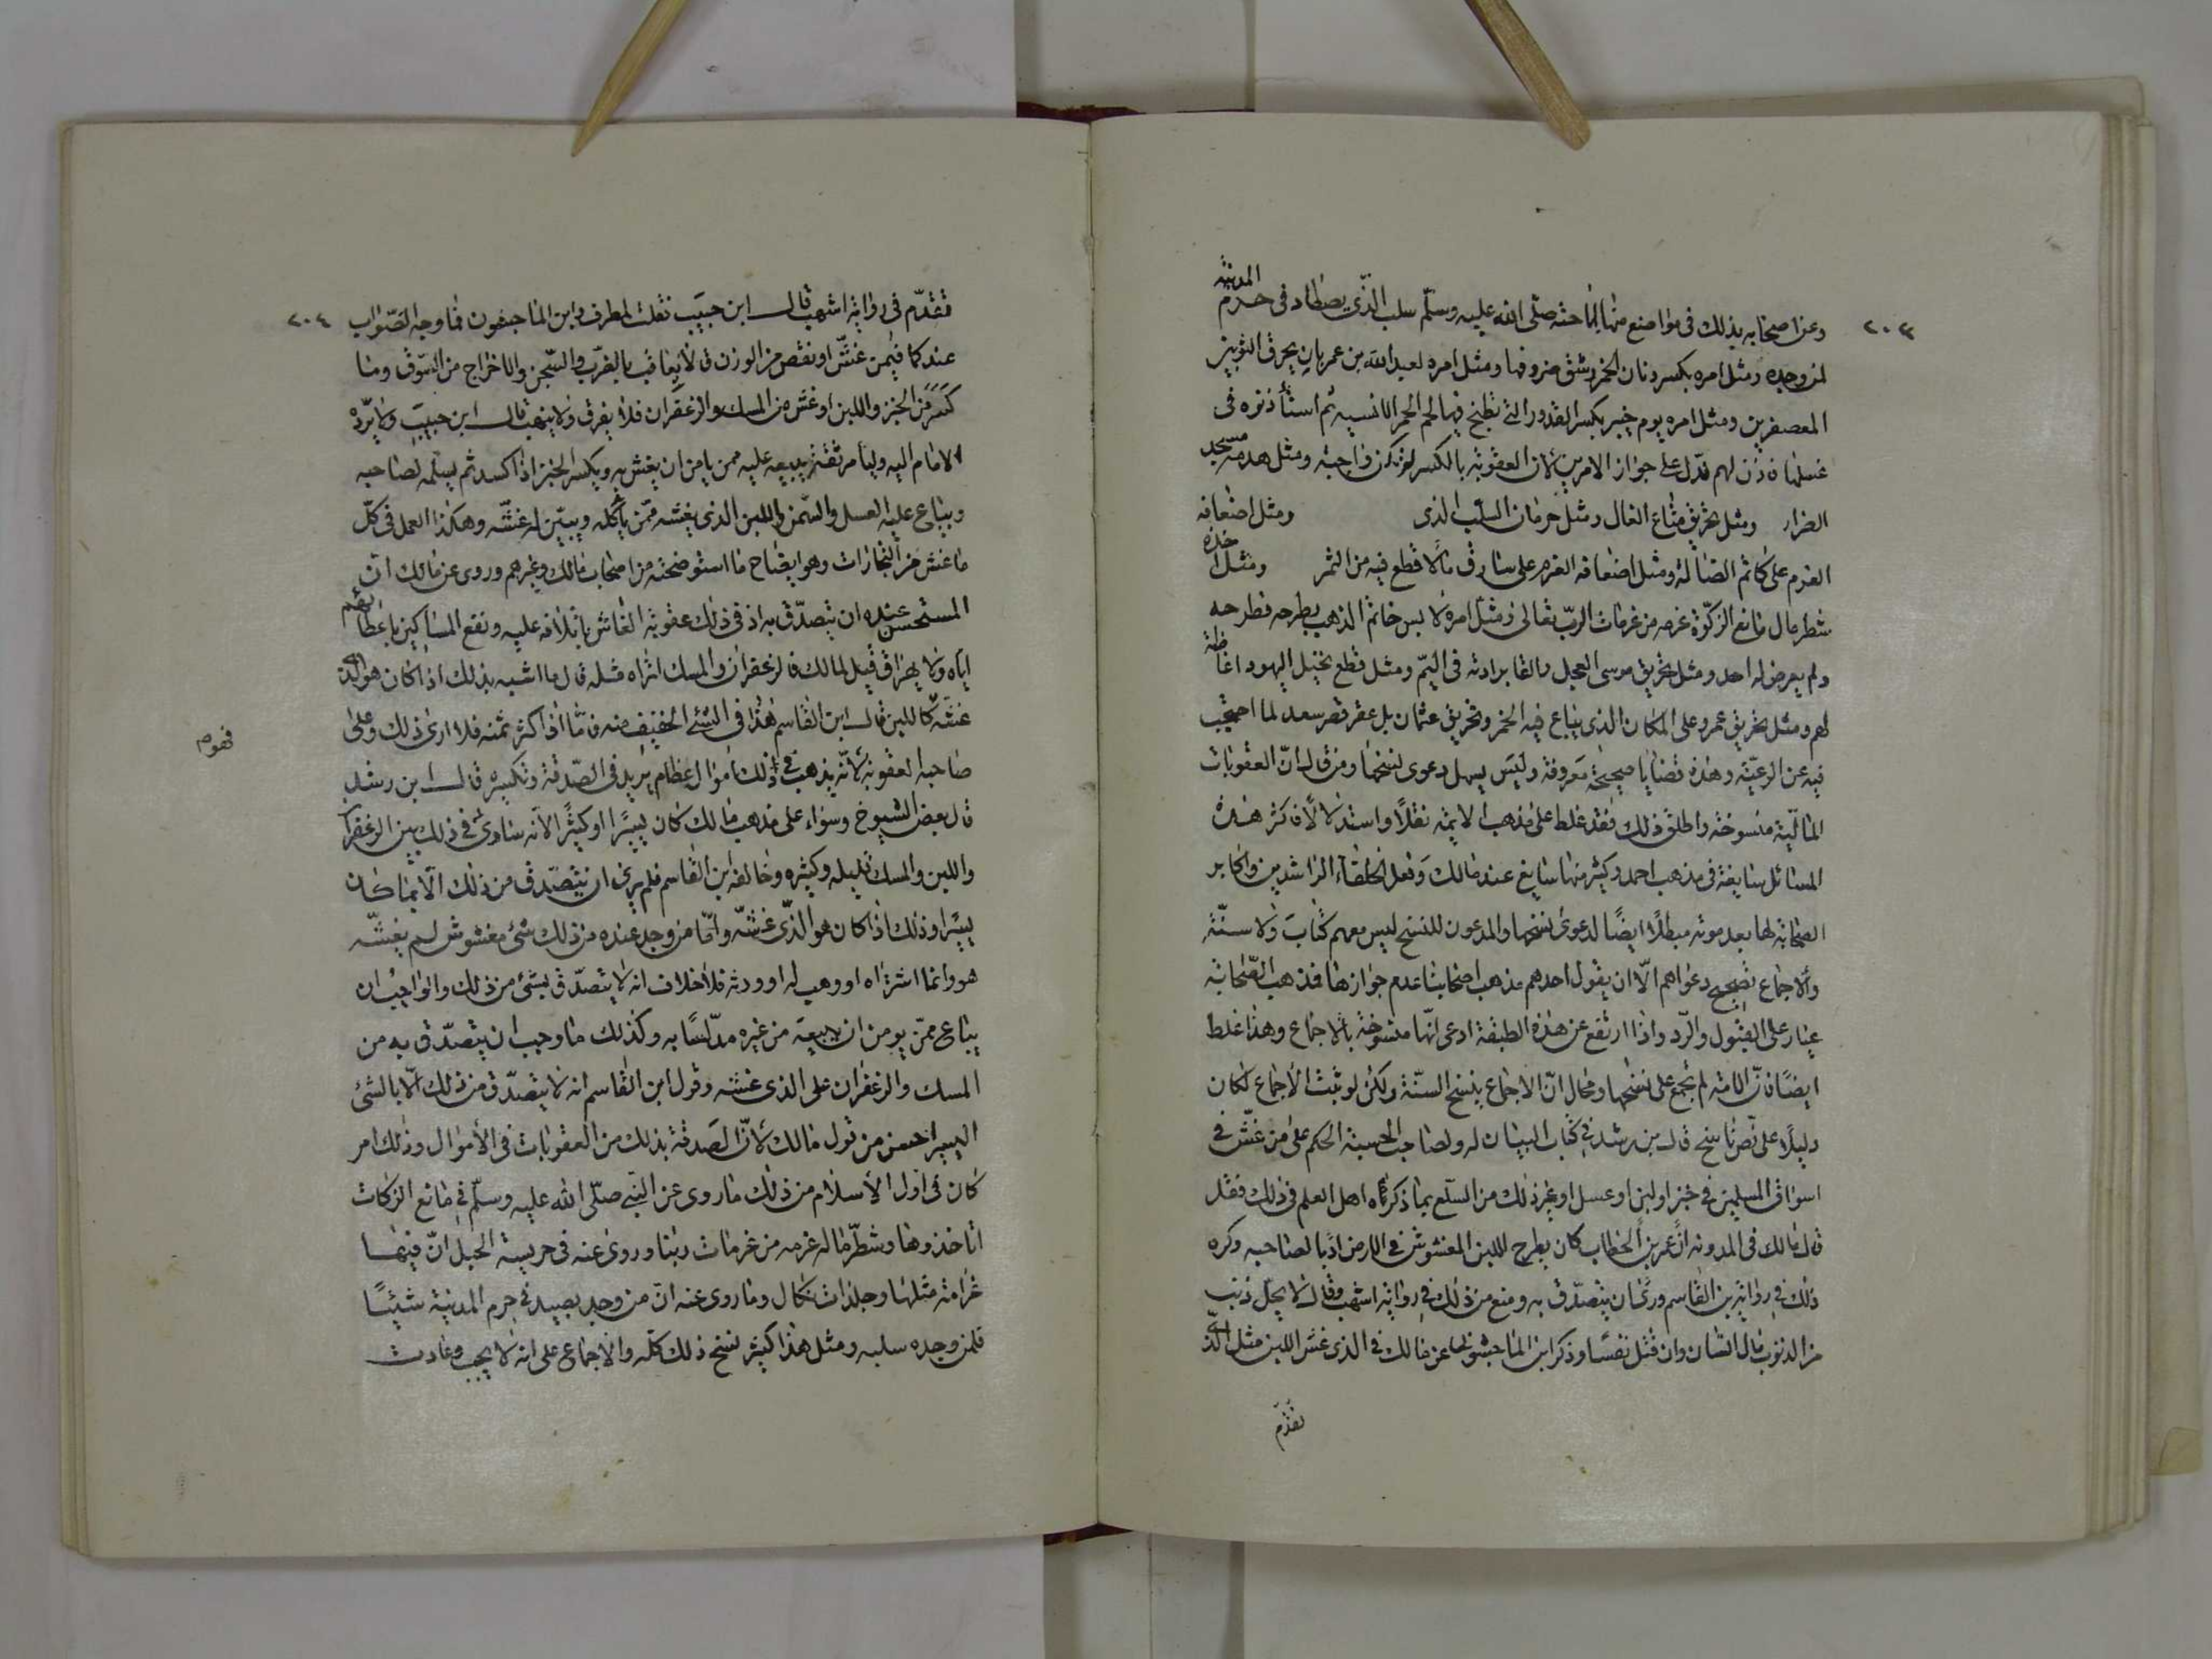 ٢٠٣
وعن اصحابه بذلك فى مواضع منها اباحته صلّى الله عليه وسلّم سلب الذّى يصطاد فى حرم المدينة
لمن وجده ومثل امره بكسر دنان الخمر وشق ضروفها ومثل امره لعبد الله بن عمر بان يحرق الثوبين
المعصفرين ومثل امره يوم خيبر بكسر القدور التى تطبخ فيها لحم الحمر الانسيه ثم استأذنوه فى
غسلها فاذن لهم فدّل على جواز الامرين لان العقوبة بالكسر لم تكن واجبة ومثل هدمه مسجد
الضرار ومثل تحريق متاع الغال ومثل حرمان السلب الذى ومثل اضعافه
الغرم على كاتم الضالة ومثل اضعافه الغرم على سارق مالا قطع فيه من الثمر ومثل اخذه
شطر مال مانع الزكوة غرمه من غرمات الربّ تعالى ومثل امره لابس خاتم الذهب يطرحه فطرحه
ولم يعرض له احد ومثل تحريق موسى العجل والقا برادته فى اليمّ ومثل قطع نخيل اليهود اغاظة
لهم ومثل تحريق عمر وعلى المكان الذى يباع فيه الخمر وتحريق عثمان بل عمر قصر سعد لما احتجب
فيه عن الرعيّة وهذه قضايا صحيحة معروفة وليس يسهل دعوى نسخها ومن قال انّ العقوبات
الماليّة منسوخة واطلق ذلك فقد غلط على مذهب الايمة نقلاً واستدلالاً فاكثر هذه
المسائل سايغة فى مذهب احمد وكثير منها سايغ عند مالك وفعل الخلفاء الراشدين واكابر
الصحابة لها بعد موته مبطلاً ايضًا لدعوى نسخها والمدعون للنسخ ليس معهم كتاب ولا سنّة
ولا اجماع تصحح دعواهم الّا ان يقول احدهم مذهب اصحابنا عدم جوازها فذهب الصّحابة
عيار على القبول والرّد واذا ارتفع عن هذه الطبقة ادعى انّها منسوخة بالاجماع وهذا غلط
ايضًا فانّ الامة لم تجمع على نسخها ومحال انّ الاجماع ينسخ السنّة ولكن لو ثبت الاجماع لكان
دليلاً على نصّ ناسخ قال بن رشد فى كتاب البيان له ولصاحب الحسبة الحكم على من غشّ فى
اسواق المسلمين فى خبز او لبن او عسل او غير ذلك من السلع بما ذكرناه اهل العلم فى ذلك فقد
قال مالك فى المدونه انّ عمر بن الخطاب كان يطرح اللبن المغشوش فى الارض ادبا لصاحبه وكره
ذلك فى رواية بن القاسم ورأى ان يتصدّق به ومنع من ذلك فى رواية اشهب وقال لا يحلّ ذنب
من الذنوب مال انسان وان قتل نفسًا وذكر ابن الماجشون عن مالك فى الذى غشّ اللبن مثل الذّى
تقدّم
٢٠٤
تقدّم فى رواية اشهب قال ابن حبيب فقلت لمطرف وابن الماجشون فما وجه الصّواب
عندكما فيمن غشّ او نقص من الوزن قالا يعاقب بالضرب والسّجن والاخراج من السّوق وما
كثر من الخبز واللبن او غش من المسك والزعفران فلا يفرق ولا ينهب قال ابن حبيب ولا يردّه
الامام اليه وليأمر ثقته ببيعه عليه ممن يامن ان يغش به ويكسر الخبز اذا كسد ثم يسلّمه لصاحبه
ويباع عليه العسل والسّمن واللبن الذى يغشه ممّن يأكله ويبيّن له غشّه وهكذا العمل فى كلّ
ما غش من التجارات وهو ايضاح ما استوضحته من اصحاب مالك وغيرهم وروى عن مالك انّ
المستحسن عنده ان يتصدّق به اذ فى ذلك عقوبة الغاش باتلافه عليه ونفع المساكين باعطائهم
ايّاه ولا يهراق قيل لمالك فالزعفران والمسك اتراه مثله قال ما اشبه بذلك اذا كان هو الذى
غشّه كاللبن قال ابن القاسم هذا فى الشئ الخفيف منه فامّا اذا كثر ثمنه فلا ارى ذلك وعلى
صاحبه العقوبة لانّه يذهب فى ذلك اموال عظام يريد فى الصّدقة بكثيره قال ابن رشد
قال بعض الشيوخ وسواء على مذهب مالك كان يسيرًا او كثيرًا الانه ساوى فى ذلك بين الزعفران
واللبن والمسك قليله وكثيره وخالفه ابن القاسم فلم ير ان يتصدّق من ذلك الّا بما كان
يسيرًا وذلك اذا كان هو الذّى غشّه وامّا من وجد عنده من ذلك شئ مغشوش لم يغشّه
هو وانما اشتراه او وهب له او ورثه فلا خلاف انه لا يتصدّق بشئ من ذلك والواجب ان
يباع ممّن يومن ان يبيعه من غيره مدلّسًا به وكذلك ما وجب ان يتصدّق به من
المسك والزعفران على الذى غشه وقول ابن القاسم انه لا يتصدّق من ذلك الّا بالشئ
اليسير احسن من قول مالك لانّ الصدقة بذلك من العقوبات فى الأموال وذلك امر
كان فى اول الأسلام من ذلك ما روى عن النبى صلّى الله عليه وسلّم فى مانع الزكاة
انا اخذوها وشطر ماله غرمه من غرمات ربنا وروى عنه فى حريسة الجبل انّ فيها
غرامة مثلها وجلدات نكال وما روى عنه انّ من وجد يصيد فى حرم المدينة شيئًا
فلمن وجده سلبه ومثل هذا كثير نسخ ذلك كلّه والاجماع على انه لا يجب وعادت